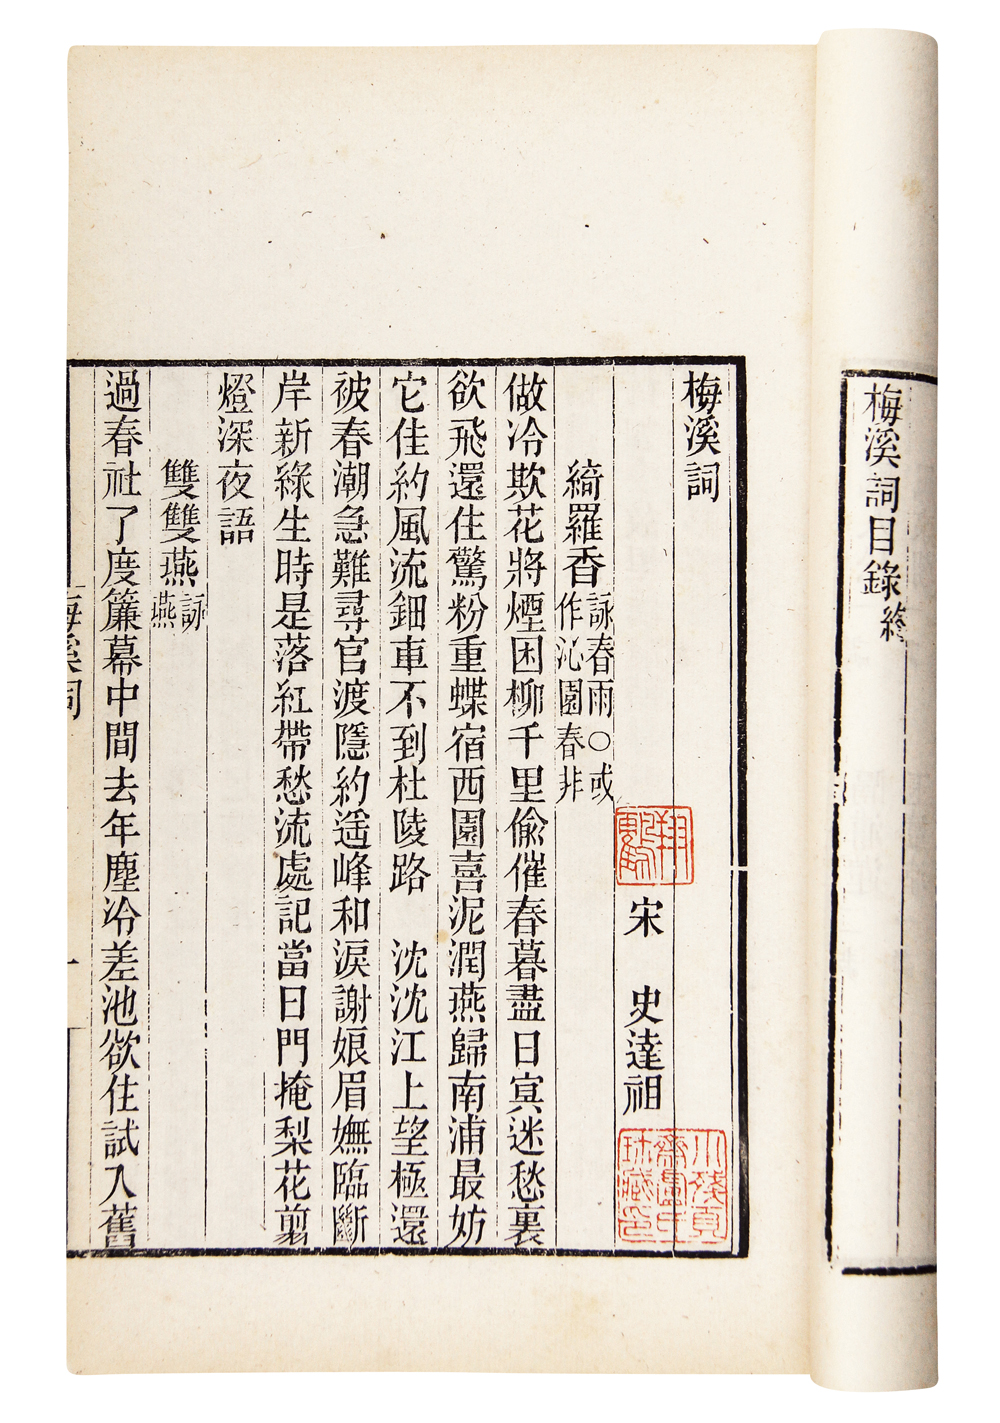 梅溪詞目錄終
梅溪詞
宋　史達祖
綺羅香詠春雨○或作沁園春非
做冷欺花將煙困柳千里偸催春暮盡日冥迷愁裏
欲飛還住驚粉重蝶宿西園喜泥潤燕歸南浦最妨
它佳約風流鈿車不到杜陵路　沈沈江上望極還
被春潮急難尋官渡隱約遥峰和淚謝娘眉嫵臨斷
岸新綠生時是落紅帶愁流處記當日門掩棃花剪
燈深夜語
雙雙燕詠燕
過春社了度簾幕中間去年塵冷差池欲住試入舊
梅溪詞
一